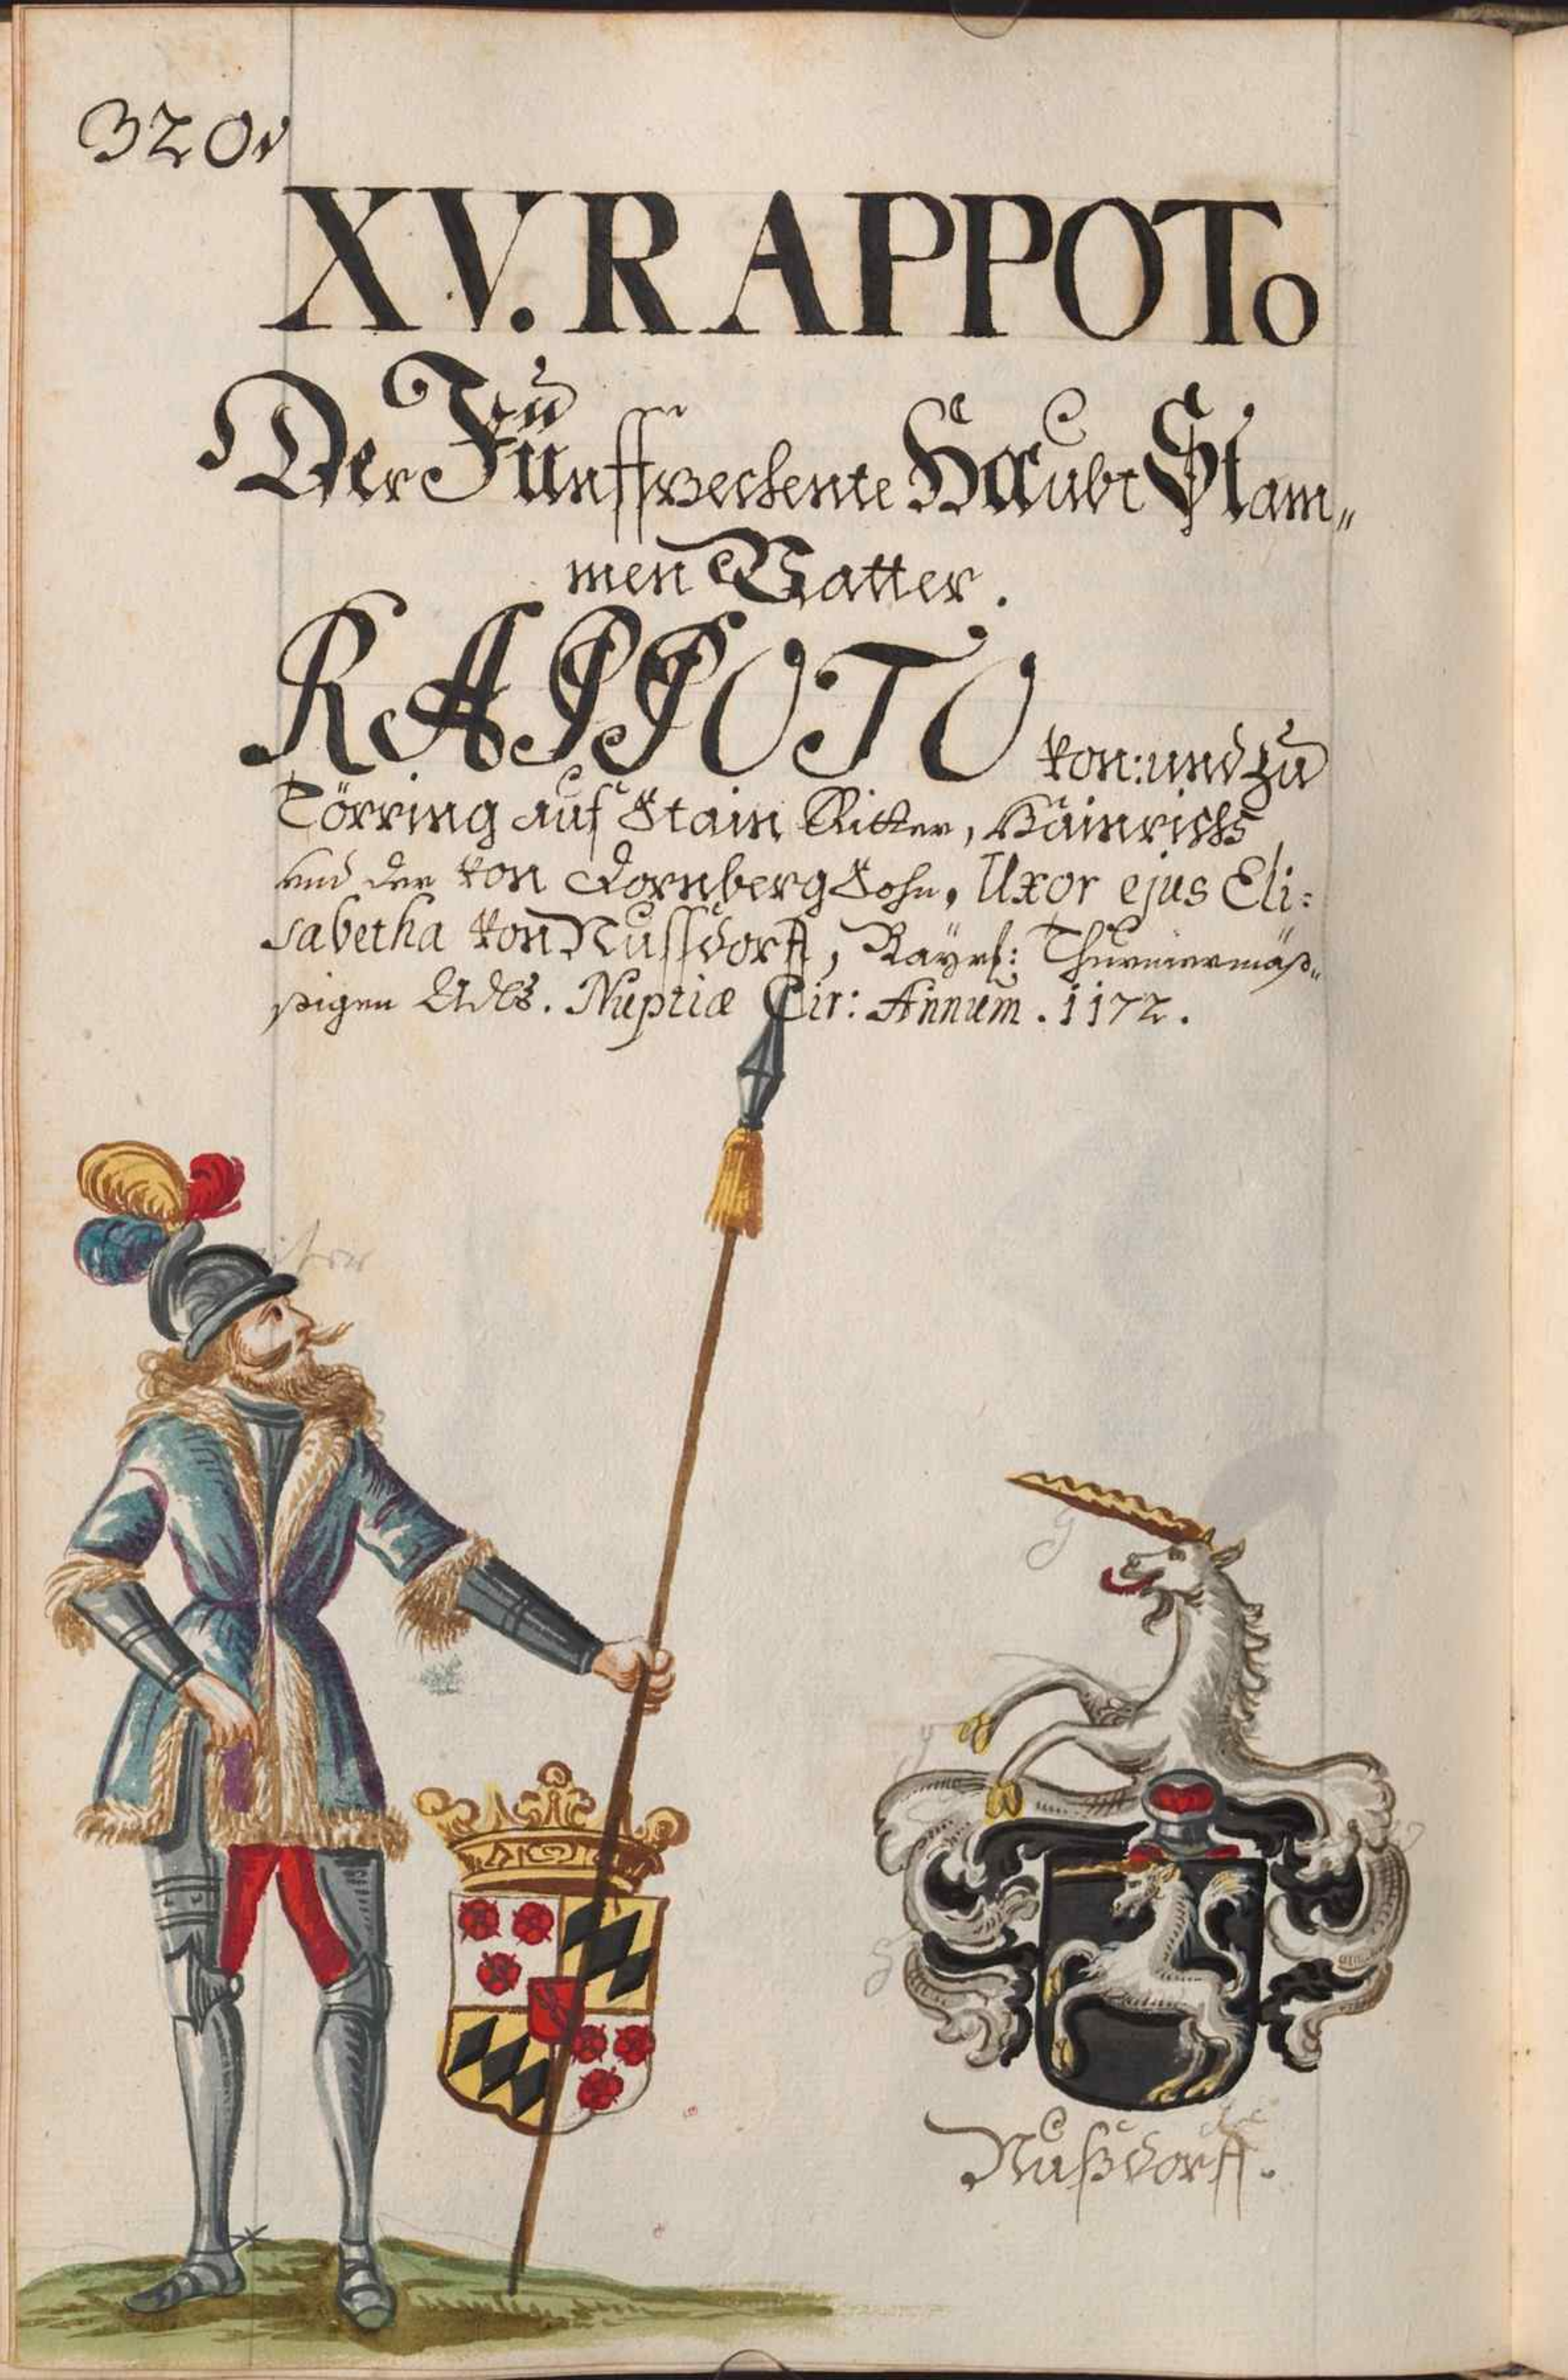 320.
XV. RAPPOTo
Der Fünffzechente Haubt Stam„
men Vatter.
RAPPOTO von: und zu
Törring auf Stain Ritter, Hainrichs
und der von Dornberg Sohn, Uxor ejus Eli:
sabetha von Nussdorff, Bayrl: Thurniermäß„
sigen Adls. Nuptiæ Cir: Annum. 1172.
Nußdorff.